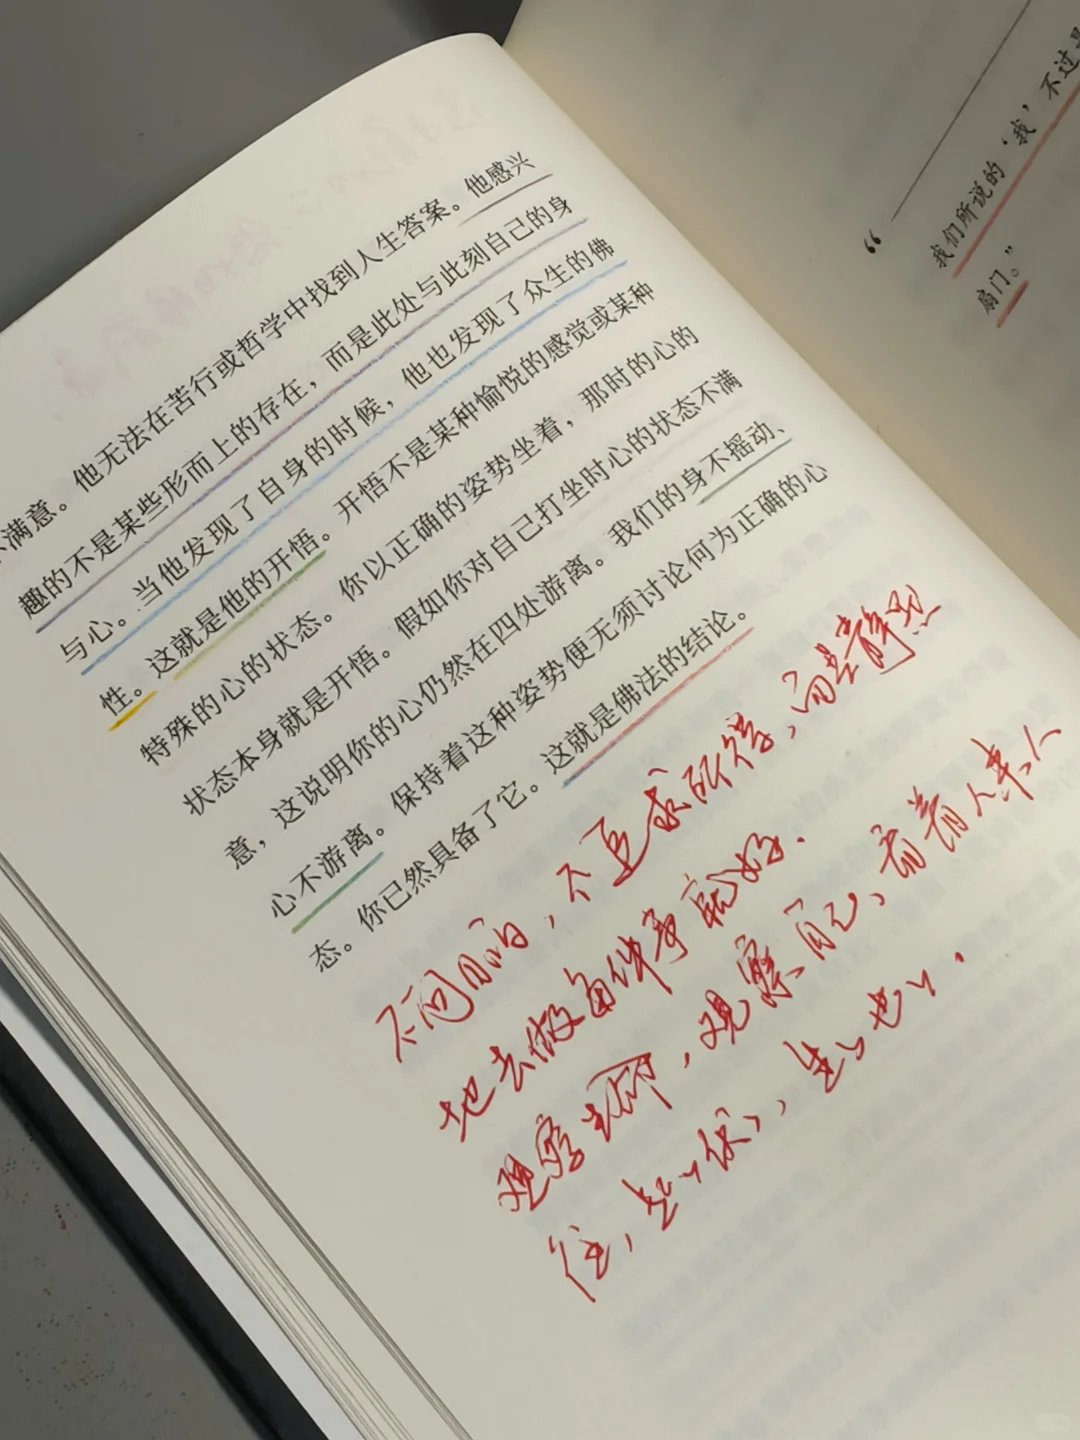 不满意。他无法在苦行或哲学中找到人生答案。他感兴
趣的不是某些形而上的存在，而是此处与此刻自己的身
与心。当他发现了自身的时候，他也发现了众生的佛
性。这就是他的开悟。开悟不是某种愉悦的感觉或某种
特殊的心的状态。你以正确的姿势坐着，那时的心的
状态本身就是开悟。假如你对自己打坐时心的状态不满
意，这说明你的心仍然在四处游离。我们的身不摇动、
心不游离。保持着这种姿势便无须讨论何为正确的心
态。你已然具备了它。这就是佛法的结论。
不问目的，不追求所得，而是静默
地去做每件事就好.
观察呼吸，观察自己，看着人来人
往，起起伏伏，生生也也.
“
我们所说的‘我’不过是
扇门。”